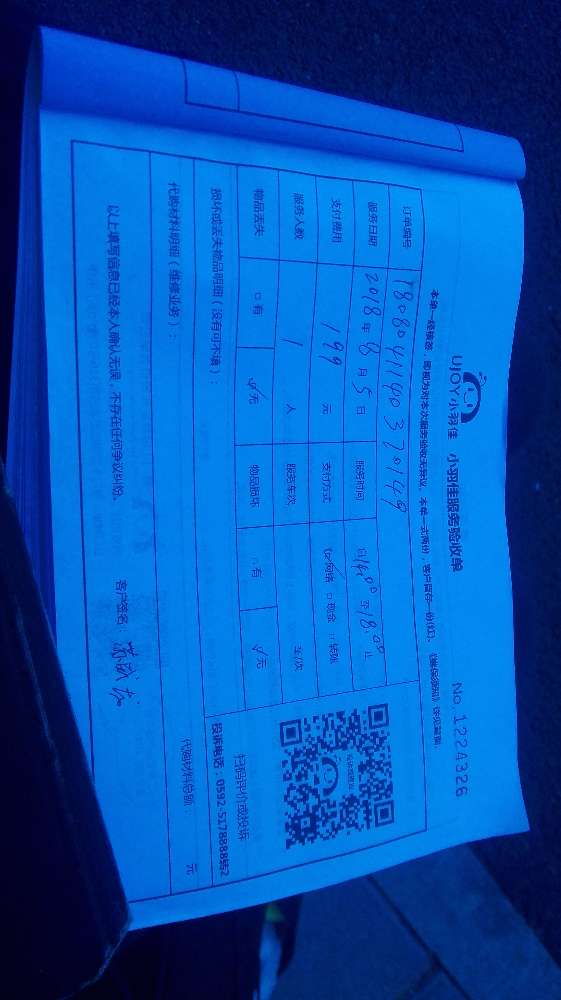 UJOY小羽佳 小羽佳服务验收单 No.1224326
本单一经核签，即视为对本次服务验收无异议，本单一式两份，客户留存一份(红)。《维保须知》详见背面。
订单编号 1808041140320149
服务日期 2018年8月5日 服务时间 日14:00至18:00止
支付费用 199元 支付方式 ☑网络 □现金 □转账
服务人数 1人 服务车次 车/次
物品丢失 □有 ☑无 物品损坏 □有 ☑无
扫码评价或投诉
投诉电话：0592-5178888转2
损坏或丢失物品明细（没有可不填）：
代购材料明细（维修业务）：
代购材料总额： 元
以上填写信息已经本人确认无误，不存在任何争议纠纷。 客户签名：